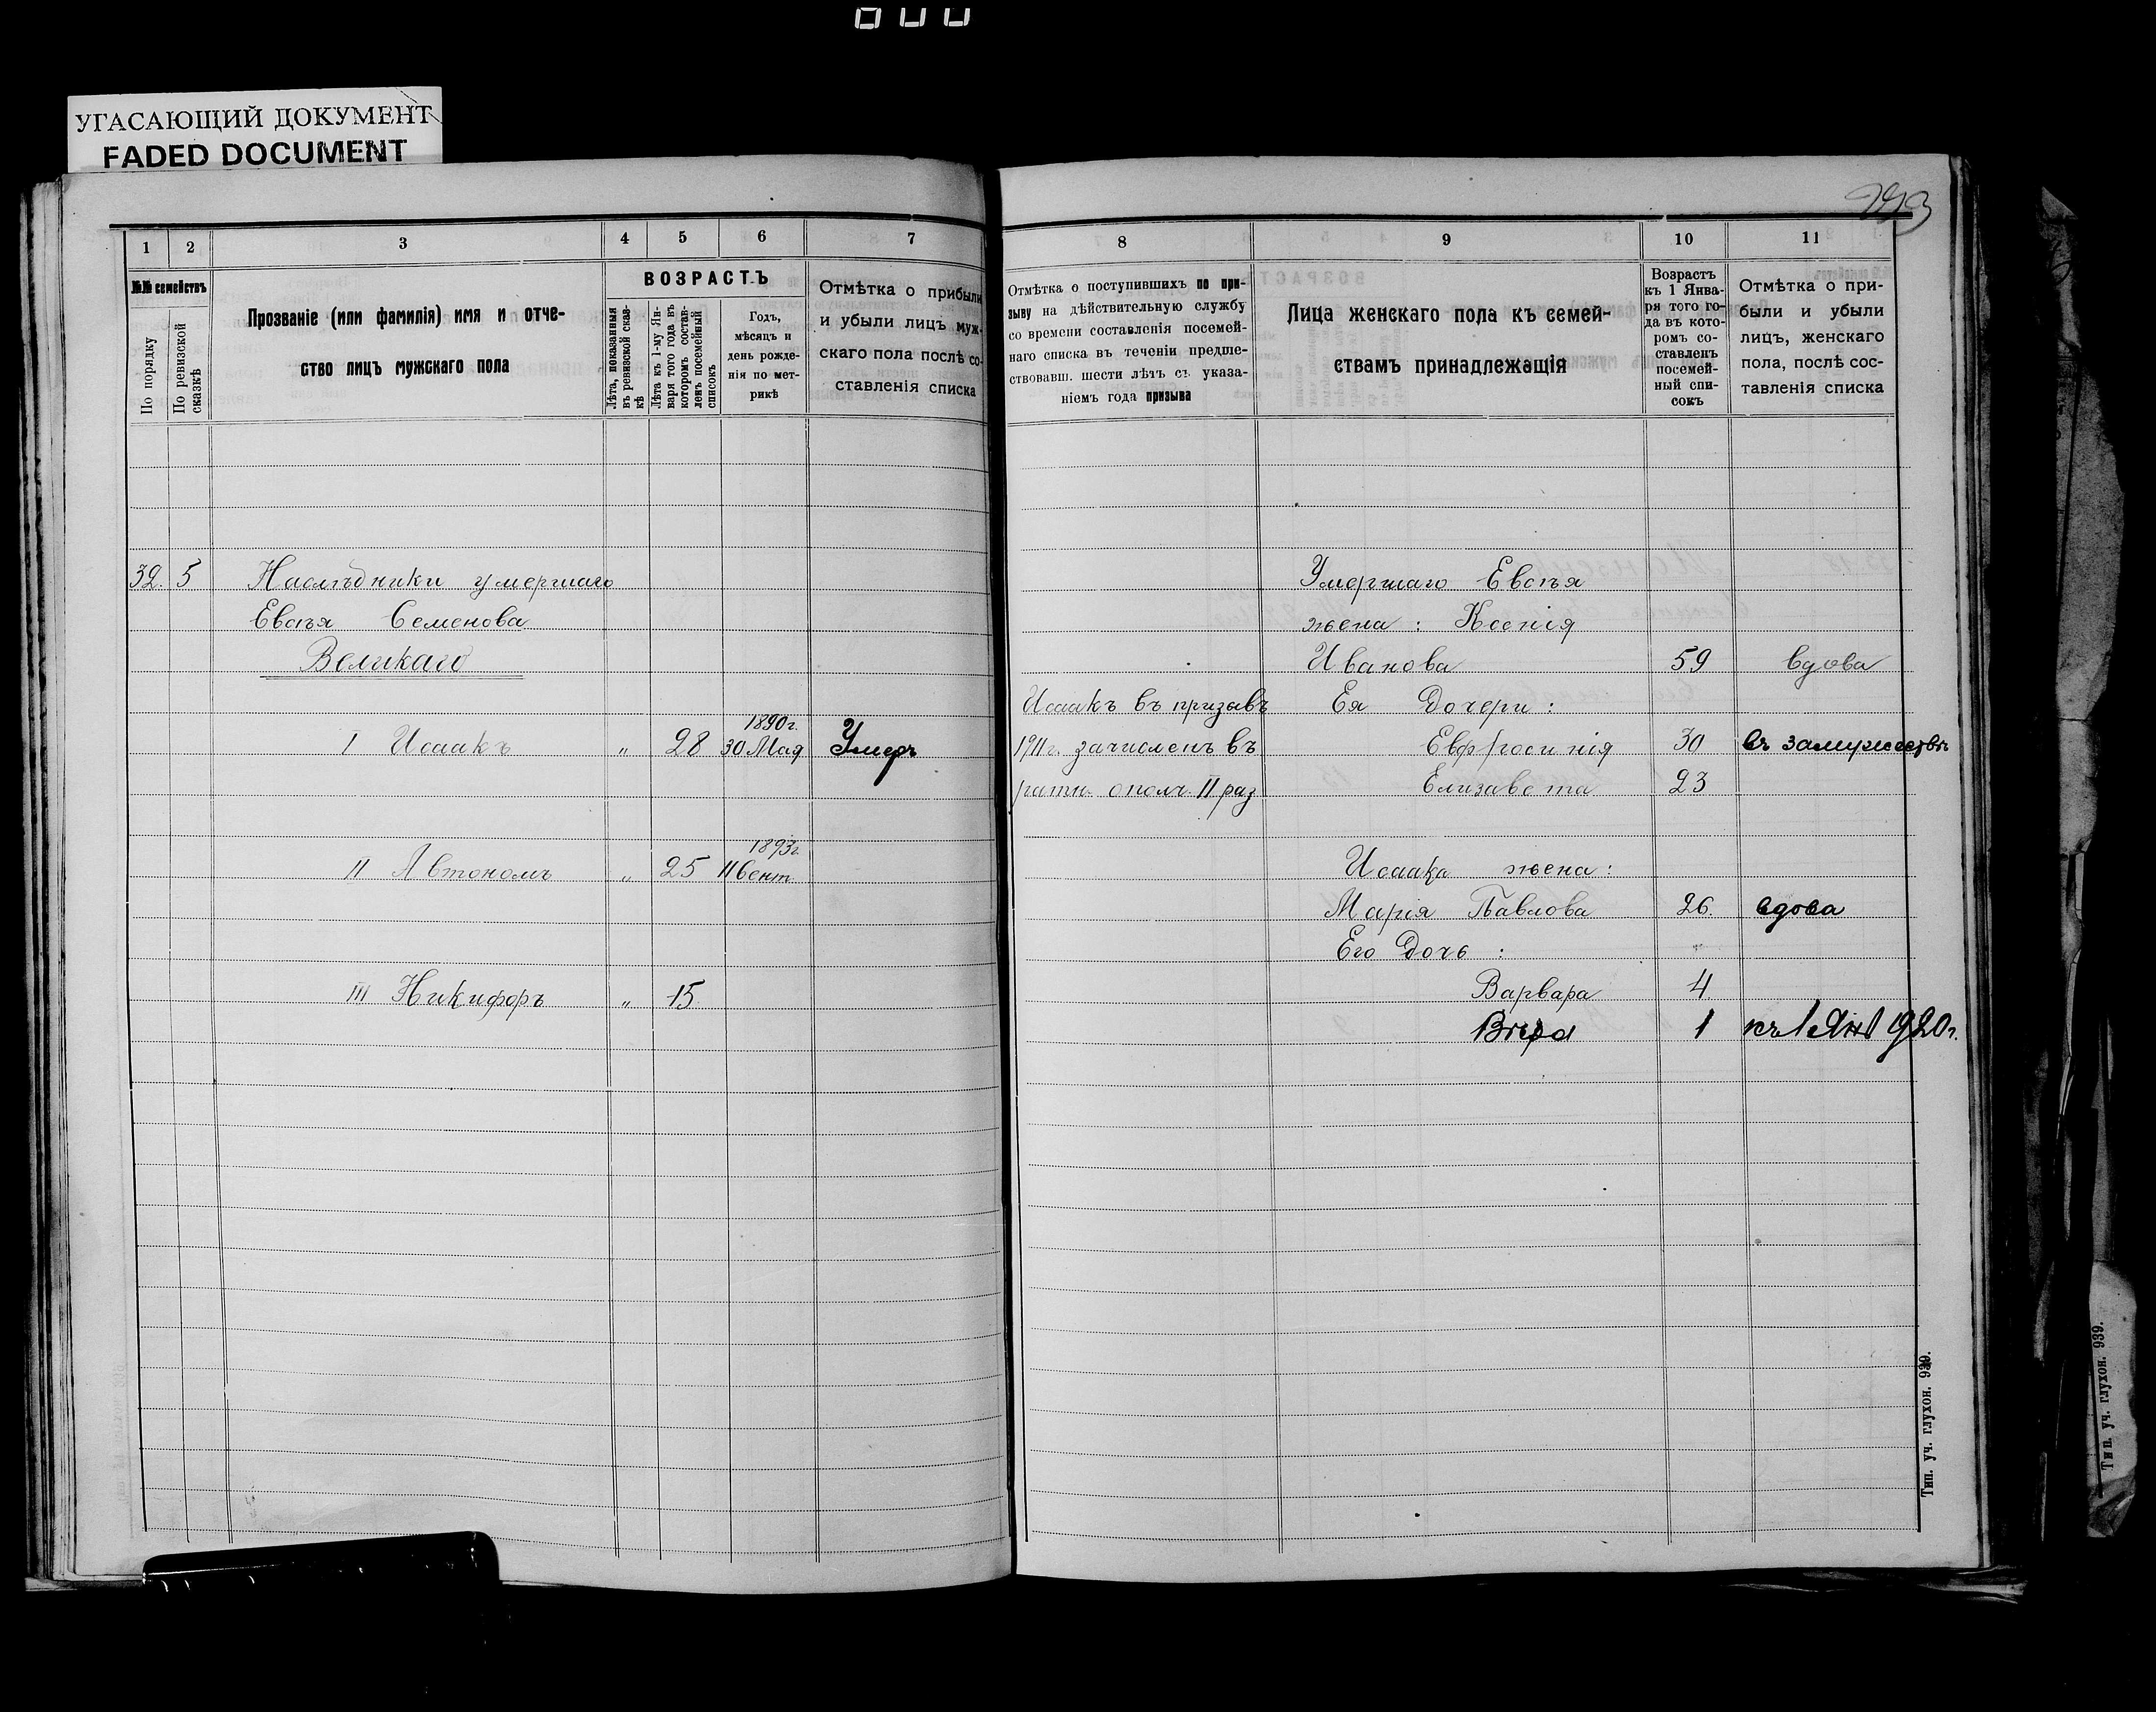 УГАСАЮЩИЙ ДОКУМЕНТ
FADED DOCUMENT
1 2 3 4 5 6 7
№№ семействъ
По порядку
По ревизской сказкѣ
Прозваніе (или фамилія) имя и отче-
ство лицъ мужскаго пола
ВОЗРАСТЪ
Лѣта, показанныя
въ ревизской сказ-
кѣ
Лѣта къ 1-му Ян-
варя того года въ
которомъ состав-
ленъ посемейный
списокъ
Годъ,
мѣсяцъ и
день рожде-
нія по мет-
рикѣ
Отмѣтка о прибыли
и убыли лицъ муж-
скаго пола послѣ со-
ставленія списка
32. 5 Наслѣдники умершаго
Евсѣя Семенова
Великаго
1890г.
I Исаакъ „ 28 30 Мая Умеръ
1893г.
II Автономъ „ 25 11 Сент.
III Никифоръ „ 15
8 9 10 11
Отмѣтка о поступившихъ по при-
зыву на дѣйствительную службу
со времени составленія посемей-
наго списка въ теченіи предше-
ствовавш. шести лѣтъ съ указа-
ніемъ года призыва
Лица женскаго пола къ семей-
ствамъ принадлежащія
Возрастъ
къ 1 Янва-
ря того го-
да въ кото-
ромъ со-
ставленъ
посемей-
ный спи-
сокъ
Отмѣтка о при-
были и убыли
лицъ, женскаго
пола, послѣ сос-
тавленія списка
Умершаго Евсѣя
жена: Ксенія
Иванова 59 вдова
Исаакъ въ призывъ Ея Дочери:
1911г. зачисленъ въ Евфросинія 30 въ замужествѣ
ратн. ополч. II раз Елизавета 23
Исаака жена:
Марія Павлова 26. вдова
Его Дочь:
Варвара 4
Вѣра 1 къ 1 Янв 1920г.
Тип. уч. глухон. 939.
Тип. уч. глухон. 939.